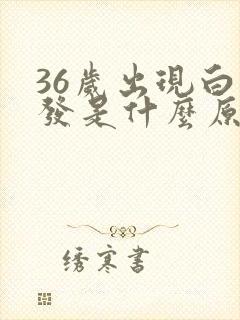 36歲出現白
發是什麼原
绣寒書